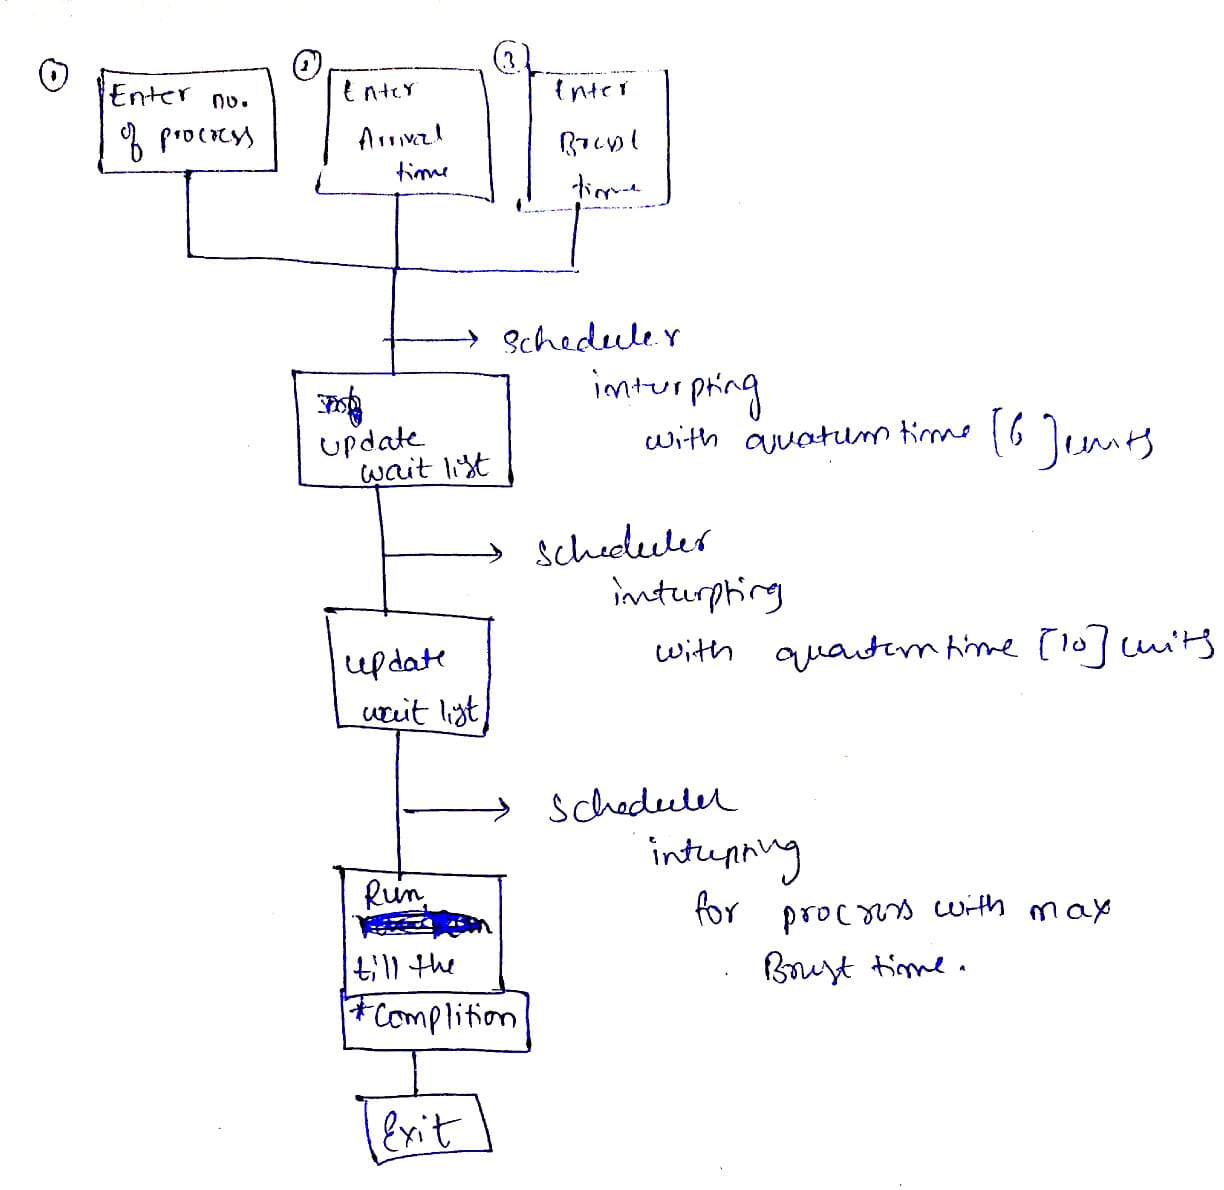 ①
Enter no.
of process
②
Enter
Arrival
time
③
Enter
Brust
time
scheduler
inturpting
with quatum time [6] units
update
wait list
scheduler
inturpting
with quantum time [10] units
update
wait list
scheduler
for process with max
Brust time.
Run
till the
*Complition
Exit